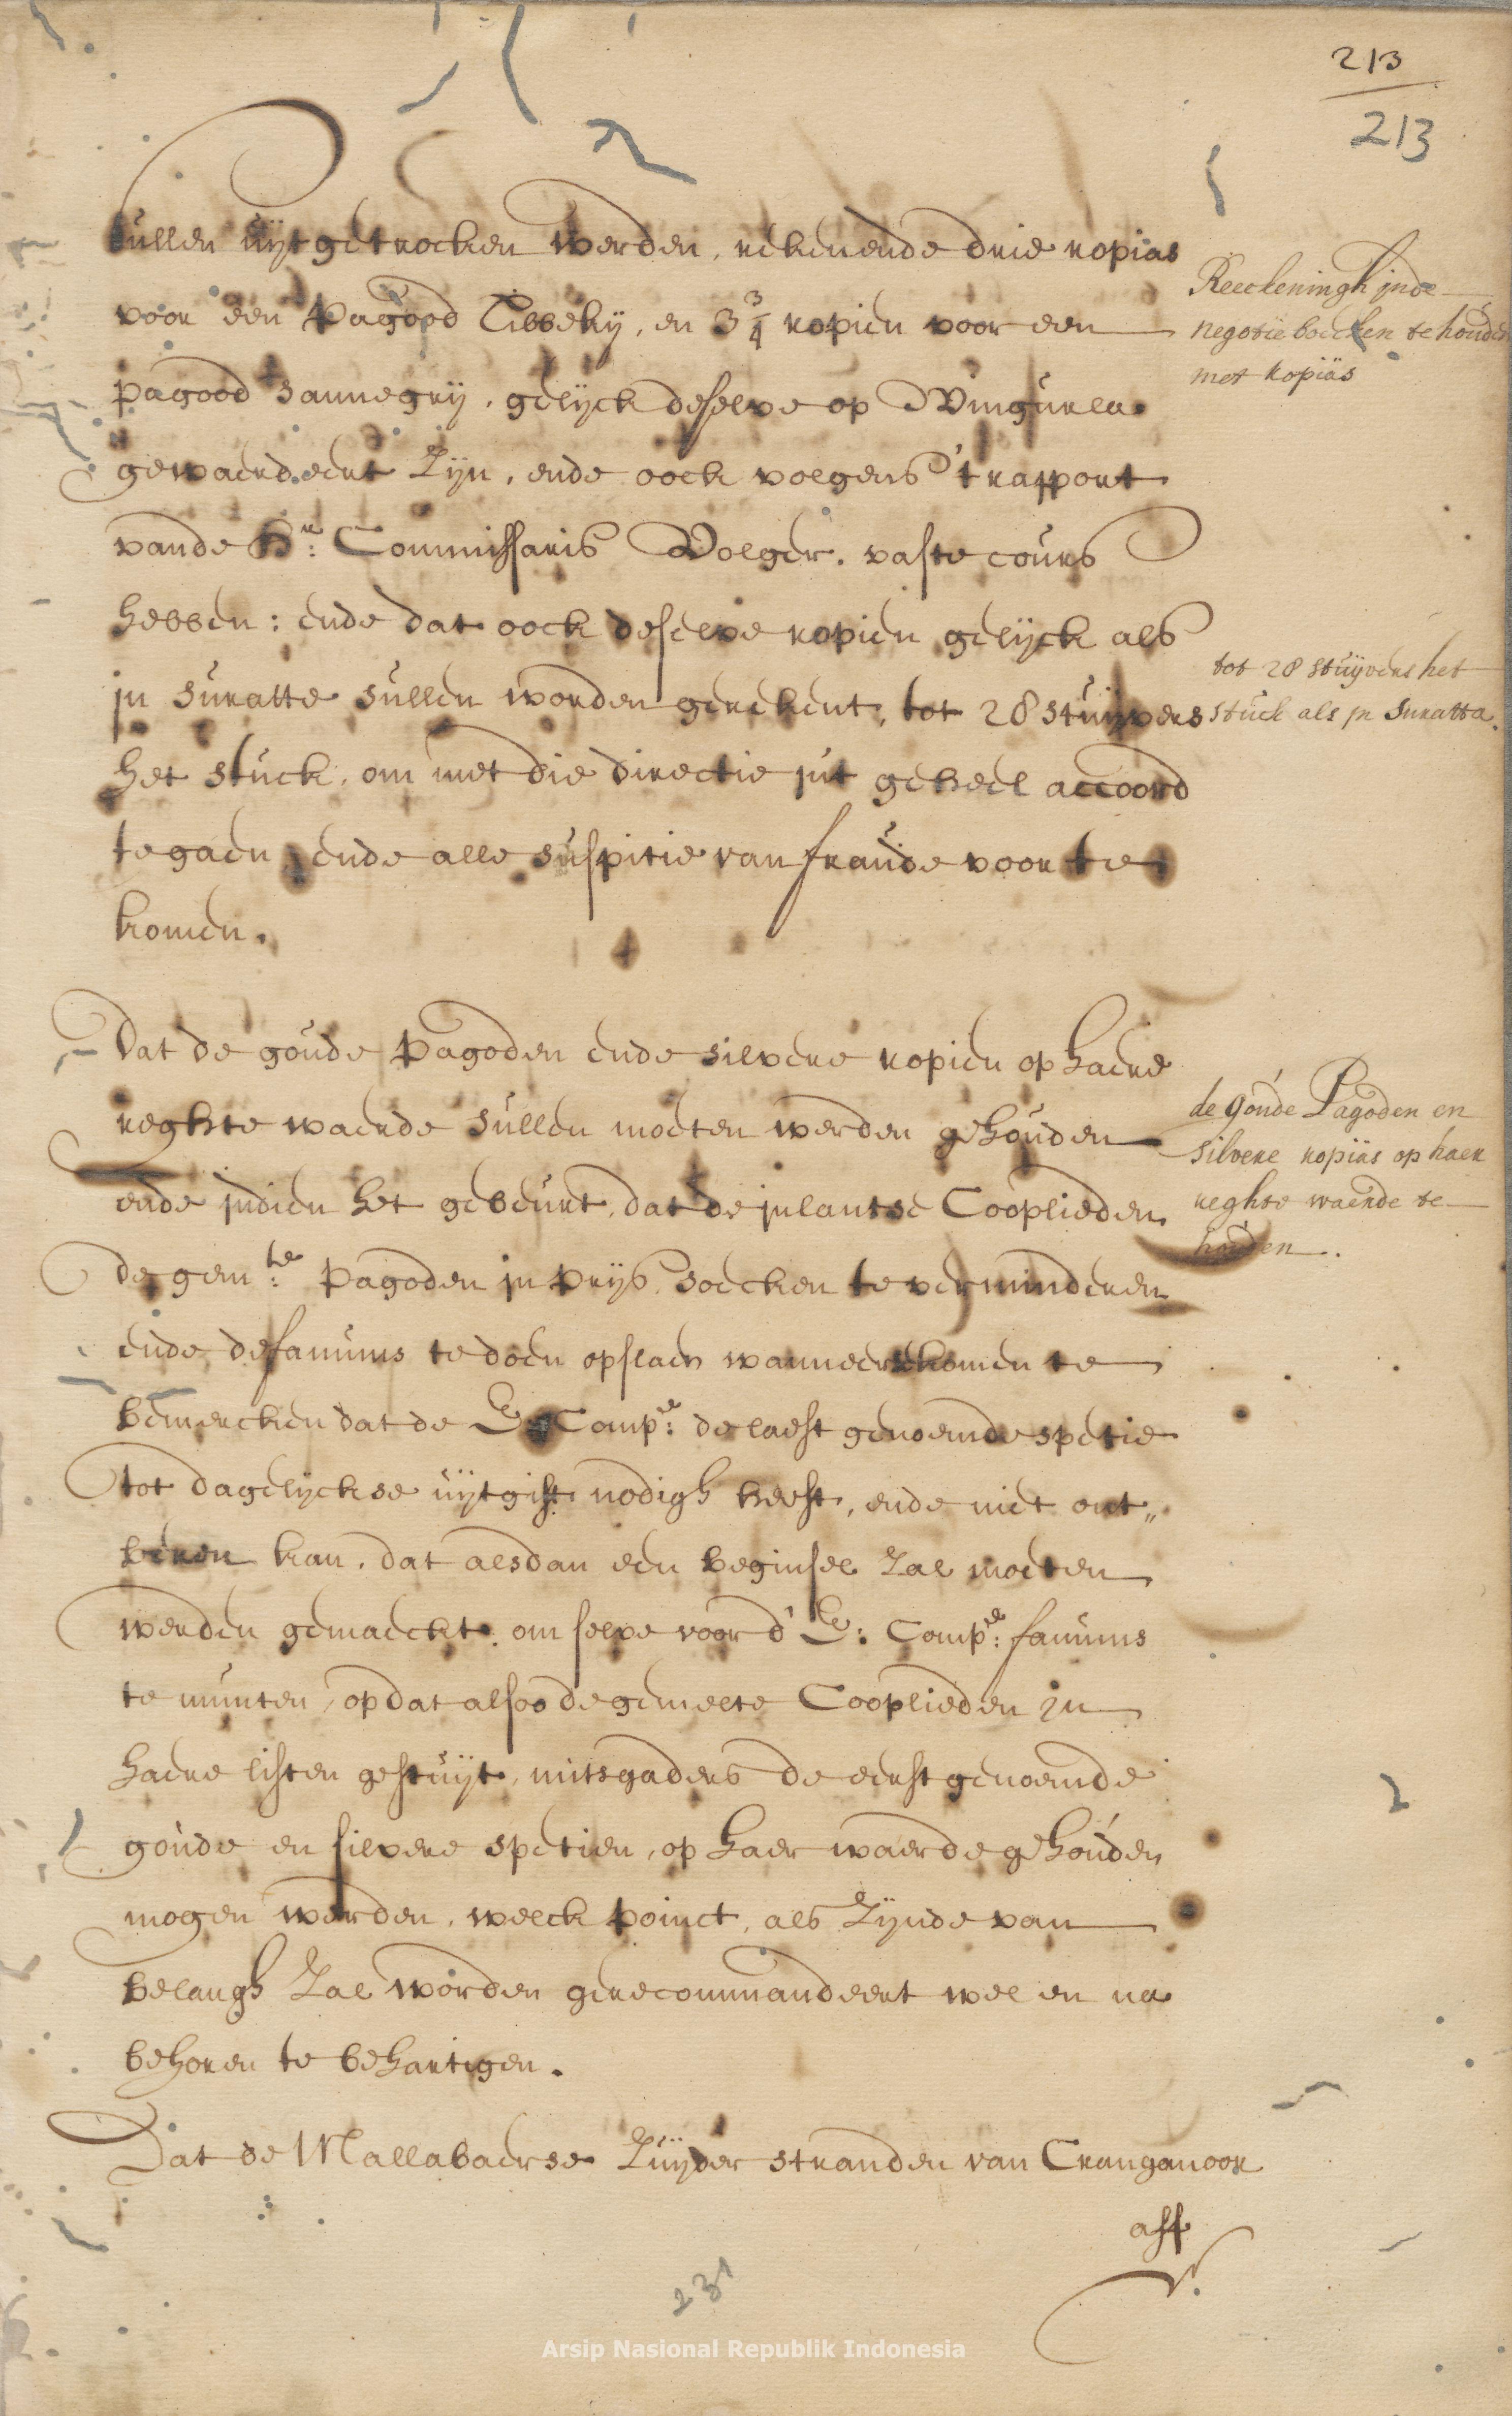 213
213
sullen uijtgetrocken werden, rekenende drie ropias
voor een Pagood Tibbekij, en 3 3/4 ropien voor een
pagood sannegrij, gelijck deselve op Wingurla
gewaerdeert zijn, ende oock volgens 't rapport
vande Hr: Commissaris Volger, vaste cours
hebben: ende dat oock deselve ropien gelijck als
in suratte sullen worden gerekent, tot 28 stuijvers
het stuck, om met die directie int geheel accoord
te gaen, ende alle suspitie van fraude voor te
komen.
Reeckeningh inde
negotie boecken te houden
met ropias
tot 28 stuijvers het
stuck als in suratta.
Dat de goude Pagoden ende silvere ropien op haere
reghte waerde sullen moeten werden gehouden
ende indien het gebeurt, dat de inlantse Cooplieden
de gemte: Pagoden in prijs soecken te verminderen
ende de fanums te doen opslaen wanneer komen te
bemercken dat de E Compe: de laest genoemde spetie
tot dagelijckse uijtgift nodigh heeft, ende niet ont„
beren kan, dat alsdan een beginsel zal moeten
werden gemaeckt, om selve voor d' E: Compe: fanums
te munten, op dat alsoo de gemelte Cooplieden in
haere listen gestuijt, mitsgaders de eerst genoemde
goude en silvere spetien, op haer waerde gehouden
mogen werden, welck poinct, als zijnde van
belangh zal worden gerecommandeert wel en na
behoren te behartigen.
de goude Pagoden en
silvere ropias op haer
reghte waerde te
houden.
Dat de Mallabaerse Zuijder stranden van Cranganoor
aff
231
Arsip Nasional Republik Indonesia